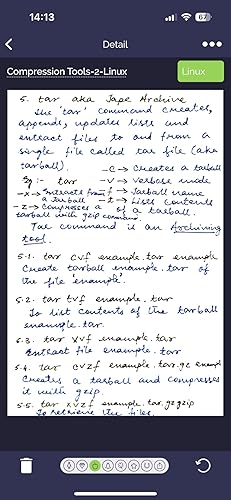 14:13
67
Detail
Compression Tools-2-Linux
Linux
5. tar aka Tape Archive
The 'tar' command creates,
appends, updates lists and
extract files to and from a
single file called tar file (aka
tarball).
-c → Creates a tarball
Eg :- tar -v → Verbose mode
-x → Extracts from a tarball
f → Tarball name
-t → Lists contents of a tarball.
-z → Compresses a tarball with gzip command.
Tar command is an Archiving
tool.
5.1. tar cvf example.tar example
Create tarball example.tar of
the file 'example'.
5.2. tar tvf example.tar
To list contents of the tarball
example.tar.
5.3. tar xvf example.tar
Extract file example.tar
5.4. tar cvzf example.tar.gz exampl
Creates a tarball and compresses
it with gzip.
5.5. tar xvzf example.tar.gz gzip
To retrieve the files.